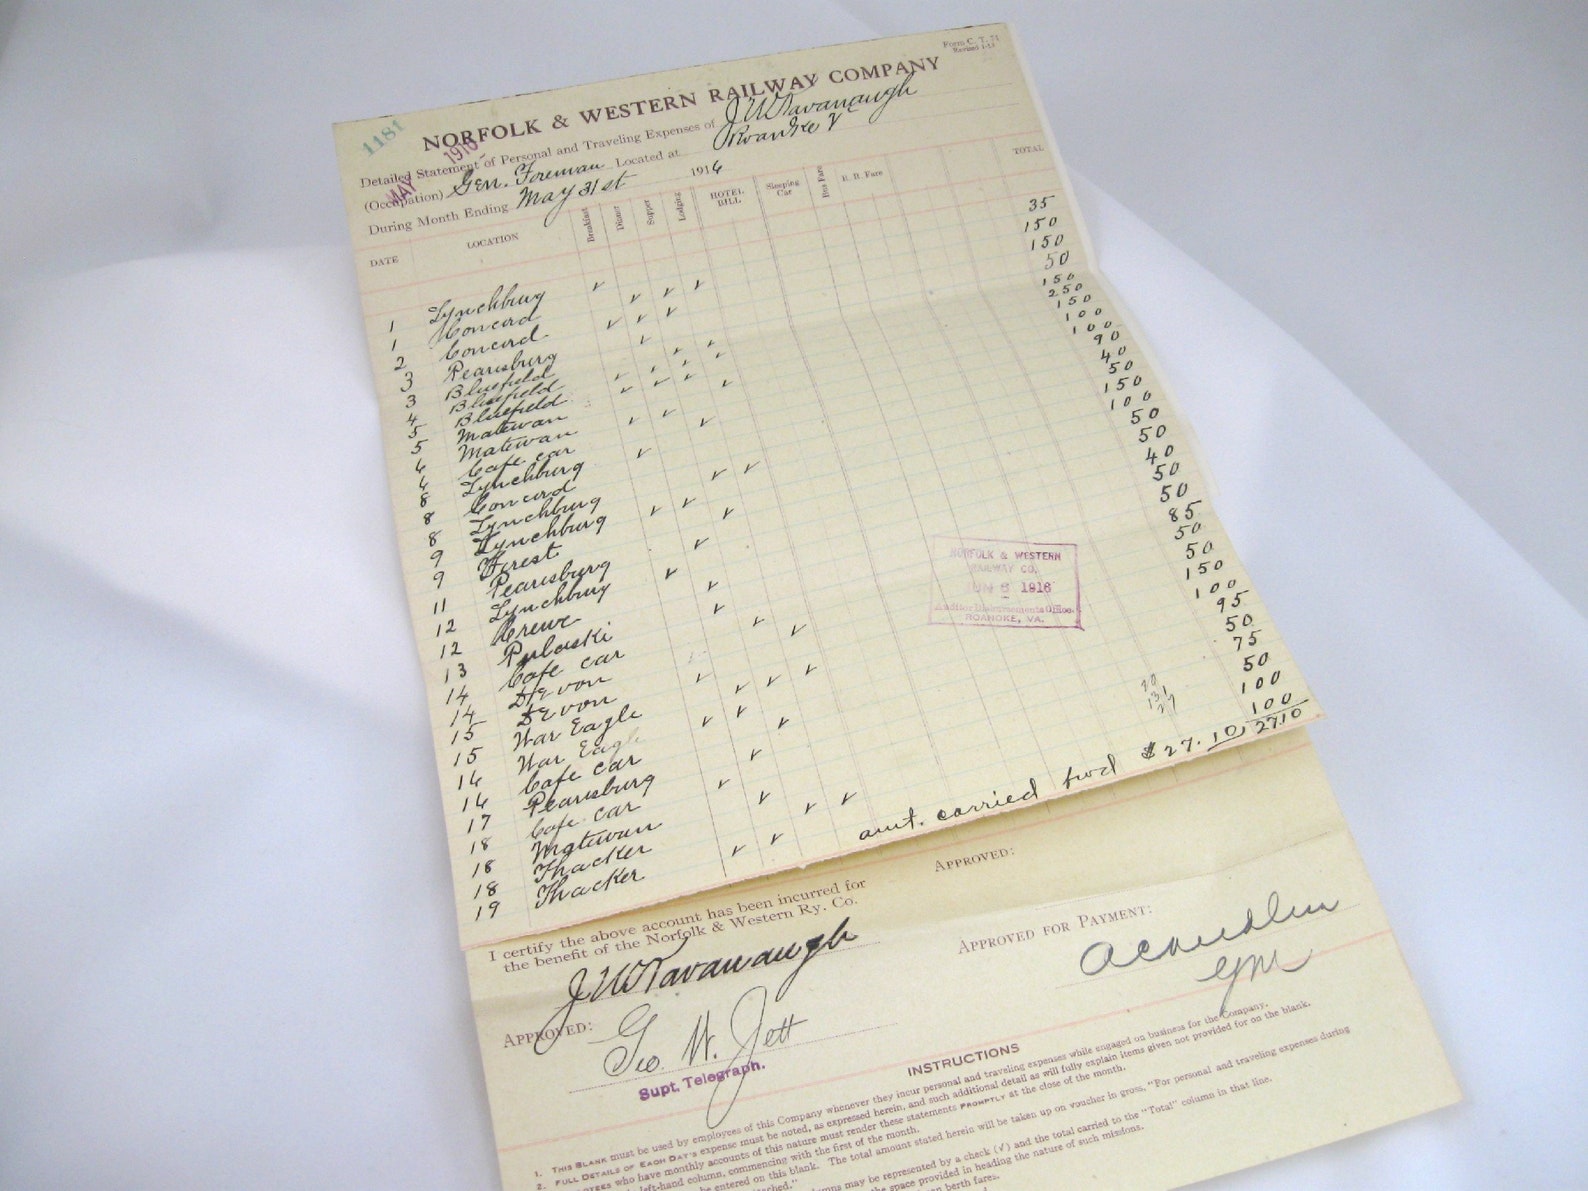 Form C. T. 71
Revised 1-13
1181
NORFOLK & WESTERN RAILWAY COMPANY
MAY 1916
Detailed Statement of Personal and Traveling Expenses of J W Kavanaugh
(Occupation) Gen. Foreman Located at Roanoke V
During Month Ending May 31st 1916
DATE LOCATION Breakfast Dinner Supper Lodging HOTEL BILL Sleeping Car Bus Fare R. R. Fare TOTAL
1 Lynchburg ✓ 35
1 Concord ✓ ✓ ✓ 150
2 Concord ✓ ✓ ✓ 150
3 Pearisburg ✓ 50
3 Bluefield ✓ ✓ 150
4 Bluefield ✓ ✓ ✓ ✓ 250
5 Bluefield ✓ ✓ ✓ 150
5 Matewan ✓ 100
6 Matewan ✓ ✓ 100
6 Cafe car ✓ 90
8 Lynchburg ✓ 40
8 Concord 50
8 Lynchburg ✓ ✓ 150
9 Lynchburg ✓ ✓ 100
9 Forest ✓ 50
11 Pearisburg ✓ 50
12 Lynchburg ✓ 40
12 Crewe ✓ 50
13 Pulaski ✓ 50
14 Cafe car ✓ 85
14 DEvon ✓ 50
15 DEvon ✓ 50
15 War Eagle ✓ ✓ ✓ 150
16 War Eagle ✓ ✓ 100
16 Cafe car ✓ 95
17 Pearisburg ✓ 50
18 Cafe car ✓ 75
18 Matewan ✓ 50
18 Thacker ✓ ✓ 100
19 Thacker ✓ ✓ 100
2710
amt. carried fwd $27.10
NORFOLK & WESTERN
RAILWAY CO.
JUN 6 1916
Auditor Disbursements Office.
ROANOKE, VA.
I certify the above account has been incurred for
the benefit of the Norfolk & Western Ry. Co.
J W Kavanaugh
APPROVED:
APPROVED:
Geo. W. Jett
Supt. Telegraph.
APPROVED FOR PAYMENT:
INSTRUCTIONS
1. THIS BLANK must be used by employees of this Company whenever they incur personal and traveling expenses while engaged on business for the Company.
2. FULL DETAILS OF EACH DAY'S expense must be noted, as expressed herein, and such additional detail as will fully explain items given not provided for on the blank.
who have monthly accounts of this nature must render these statements PROMPTLY at the close of the month.
left-hand column, commencing with the first of the month.
be entered on this blank. The total amount stated herein will be taken up on voucher in gross, "For personal and traveling expenses during
may be represented by a check (√) and the total carried to the "Total" column in that line.
the space provided in heading the nature of such missions.
berth fares.